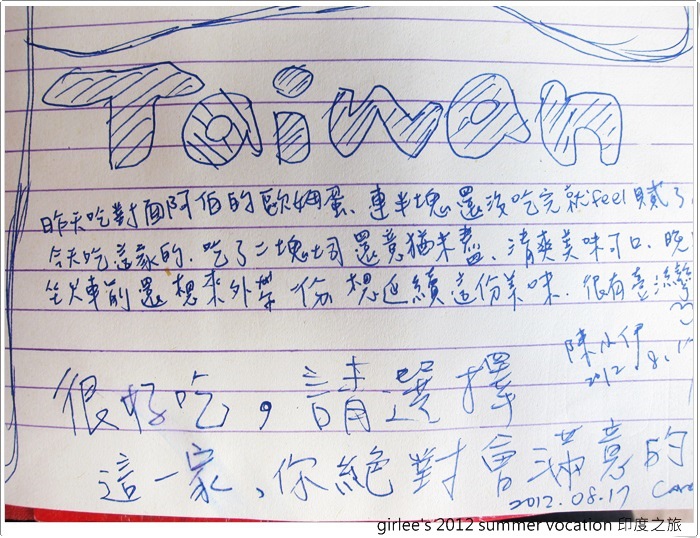 Taiwan
昨天吃對面阿伯的歐姆蛋、連半塊還沒吃完就feel膩了
今天吃這家的.吃了二塊吐司還意猶未盡、清爽美味可口.晚
坐火車前還想來外帶一份.想延續這份美味.很有臺流
陳
2012 8.1
很好吃,請選擇
這一家、你絕對會滿意的
2012.08.17
girlee's 2012 summer vocation 印度之旅